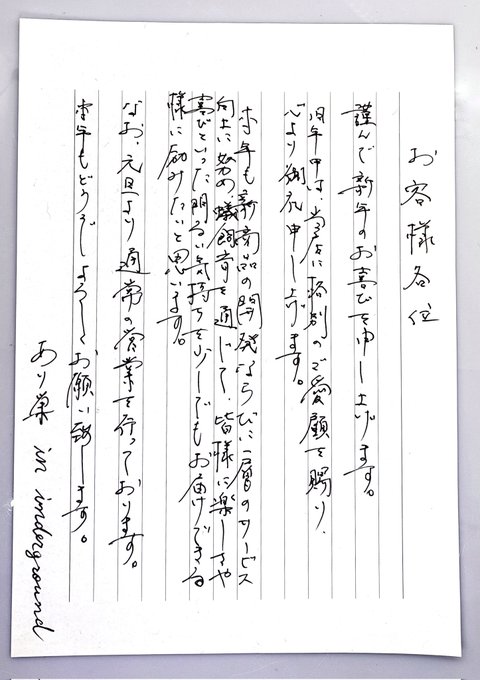 お客様各位
謹んで新年のお喜びを申し上げます。
旧年中は、当店に格別のご愛顧を賜り、
心より御礼申し上げます。
本年も新商品の開発ならびに一層のサービス
向上に努め、蟻飼育を通じて、皆様に楽しさや
喜びといった明るい気持ちを少しでもお届けできる
様に励みたいと思います。
なお、元旦より通常の営業を行っております。
本年もどうぞよろしくお願い致します。
あり巣 in inderground